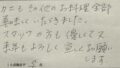 カニもその他のお料理全部
美味しくいただきました。
スタッフの方も優しくて又
来年もよろしくお願いし
ます